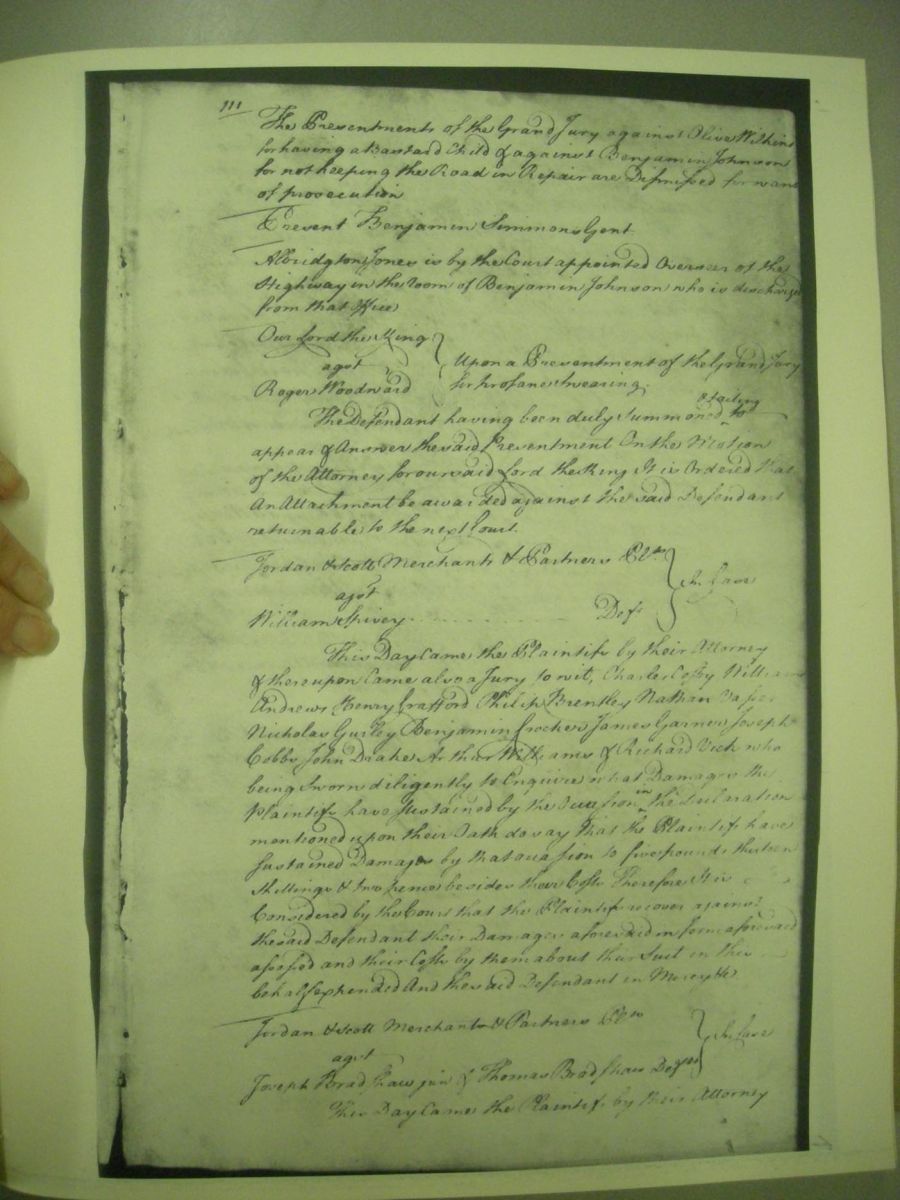 111
The Presentments of the Grand Jury against Olive Wilkins
for having a Bastard Child & against Benjamin Johnson
for not keeping the Road in Repair are Dismissed for want
of prosecution
Present Benjamin Simmons Gent
Albridgton Jones is by the Court appointed Overseer of the
Highway in the room of Benjamin Johnson who is discharged
from that Office
Our Lord the King
agst
Upon a Presentment of the Grand Jury
Roger Woodward
for profane Swearing
The Defendant having been duly Summoned & failing to
appear & Answer the said Presentment On the Motion
of the Attorney for our said Lord the King It is Ordered that
An Attachment be awarded against the said Defendant
returnable to the next Court
Jordan & Scott Merchants & Partners Plts
agst
In Case
William Spivey Deft
This Day Came the Plaintifs by their Attorney
& thereupon Came also a Jury to wit, Charles William
Andrews Henry Crafford Philip Brantley Nathan Vasser
Nicholas Gurley Benjamin Crocker James Garner Joseph
Cobbs John Drake Arthur Williams & Richard Vick who
being Sworn diligently to Enquire what Damages the
Plaintifs have Sustained by the Occasion in the Declaration
mentioned upon their Oath do say that the Plaintifs have
Sustained Damages by that occasion to five pounds thirteen
Shillings & two pence besides their Costs Therefore It is
Considered by the Court that the Plaintifs recover against
the said Defendant their Damages aforesaid in form aforesaid
assessed and their Costs by them about their Suit in this
behalf expended And the said Defendant in Mercy &c
Jordan & Scott Merchants & Partners Plts
agst
In Case
Joseph Bradshaw jun & Thomas Bradshaw Defts
This Day Came the Plaintifs by their Attorney